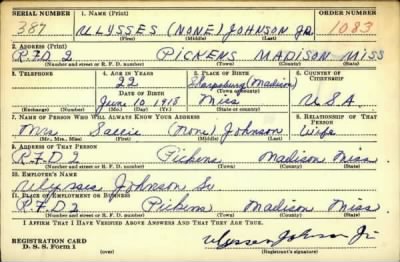 SERIAL NUMBER 1. NAME (Print) ORDER NUMBER
387 ULYSSES (NONE) JOHNSON JR. 1083
(First) (Middle) (Last)
2. ADDRESS (Print)
R.F.D 2 PICKENS MADISON MISS
(Number and street or R. F. D. number) (Town) (County) (State)
3. TELEPHONE 4. AGE IN YEARS 5. PLACE OF BIRTH 6. COUNTRY OF CITIZENSHIP
22 Sharpsburg (Madison)
DATE OF BIRTH (Town or county)
June 10 1918 Miss U.S.A.
(Exchange) (Number) (Mo.) (Day) (Yr.) (State or country)
7. NAME OF PERSON WHO WILL ALWAYS KNOW YOUR ADDRESS 8. RELATIONSHIP OF THAT PERSON
Mrs Sallie (None) Johnson Wife
(Mr., Mrs., Miss) (First) (Middle) (Last)
9. ADDRESS OF THAT PERSON
R.F.D 2 Pickens Madison Miss.
(Number and street or R. F. D. number) (Town) (County) (State)
10. EMPLOYER'S NAME
Ulysses Johnson Sr
11. PLACE OF EMPLOYMENT OR BUSINESS
R.F.D 2 Pickens Madison Miss
(Number and street or R. F. D. number) (Town) (County) (State)
I AFFIRM THAT I HAVE VERIFIED ABOVE ANSWERS AND THAT THEY ARE TRUE.
REGISTRATION CARD
D. S. S. Form 1 (over) Ulysses Johnson Jr
(Registrant's signature)